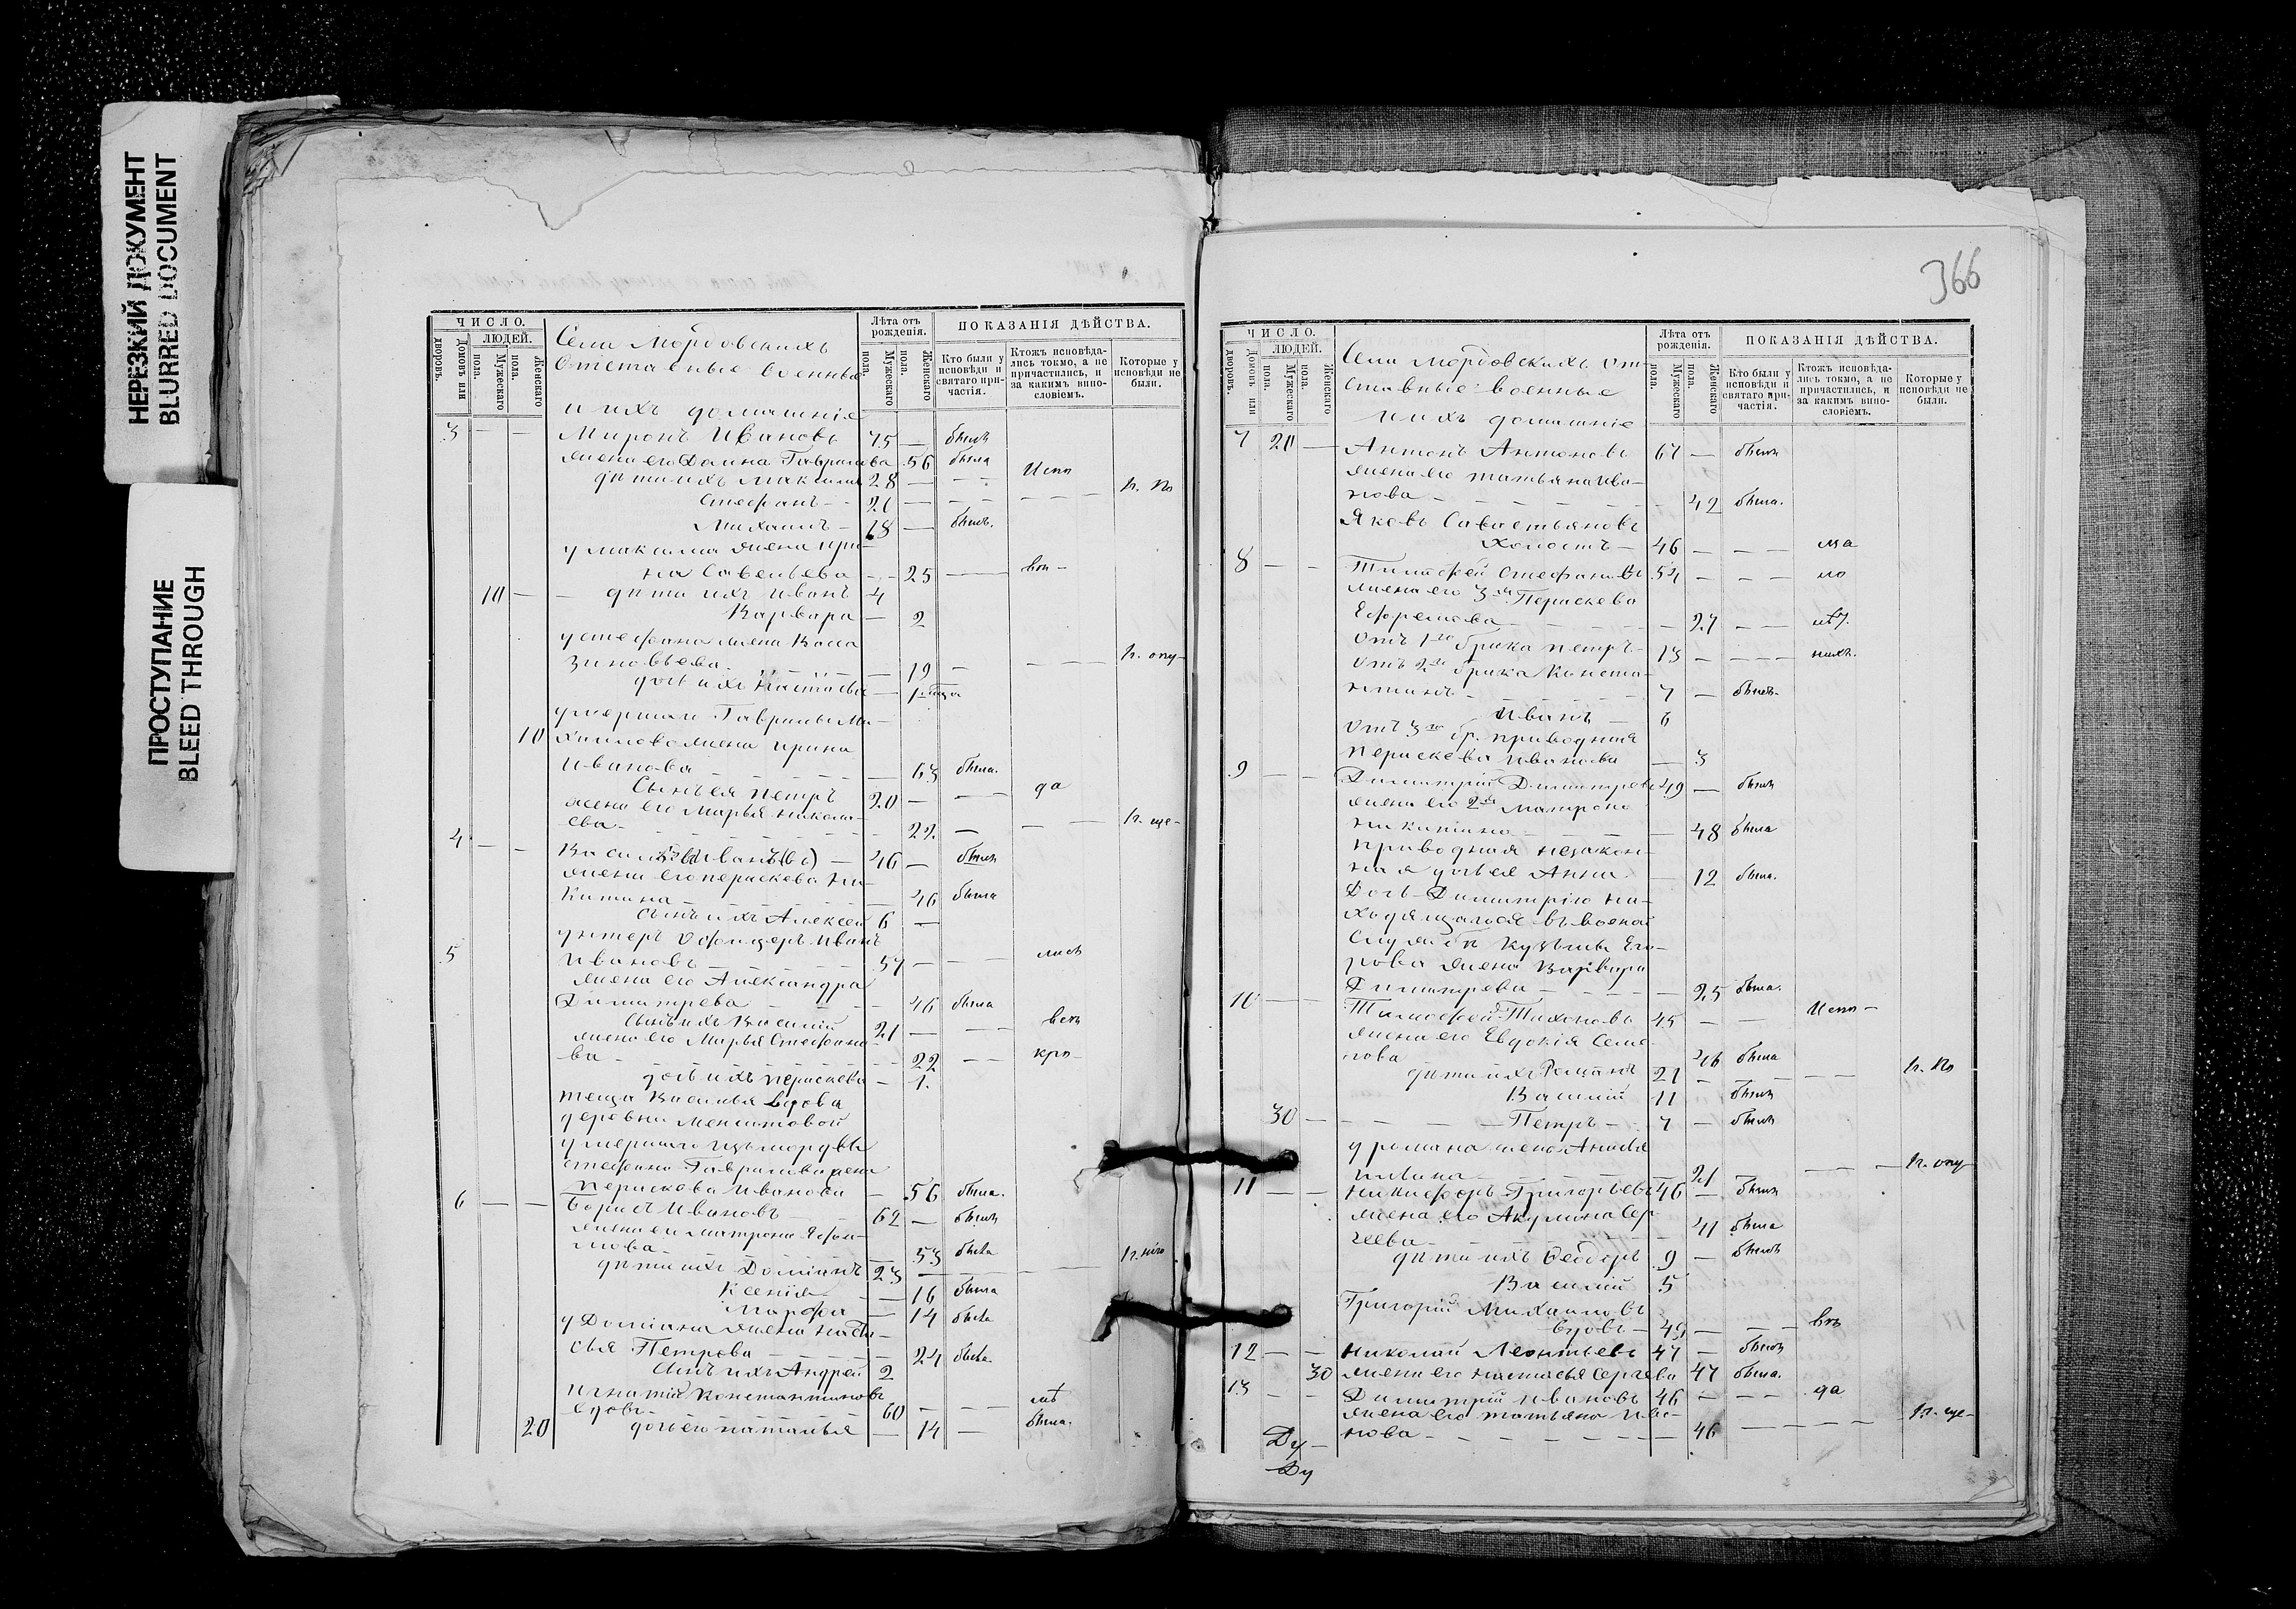 НЕРЕЗКИЙ ДОКУМЕНТ
BLURRED DOCUMENT
ПРОСТУПАНИЕ
BLEED THROUGH
ЧИСЛО.
ЛЮДЕЙ.
Домовъ или дворовъ.
Мужескаго пола.
Женскаго пола.
Села Мордовскихъ
Отставные военные
и ихъ домашніе
Лѣта отъ рожденія.
Мужескаго пола.
Женскаго пола.
ПОКАЗАНІЯ ДѢЙСТВА.
Кто были у исповѣди и святаго причастія.
Ктожъ исповѣдались токмо, а не причастились, и за какимъ винословіемъ.
Которые у исповѣди не были.
3 — — Миронъ Ивановъ 75 — былъ
жена его Домна Гаврилова 56 была
дѣти ихъ Максимъ 28 — — Испо
Стефанъ 21 — — — — п. по
Михаилъ — 18 — былъ.
у Максима жена Ири-
на Савельева — 25 — вѣ —
10 — — дѣти ихъ Иванъ 4
Варвара — 2
у Стефана жена Васса
Зиновьева — 19 — — — п. опу-
дочь ихъ Настасья —
умершаго Гаврилы Ми-
10 хайлова жена Ирина
Иванова — — — 63 была.
Сынъ ея Петръ 20 — — да
жена его Марья Никола-
ева — — — 22 — — п. уще-
4 — — Василій Ивановъ — 46 — былъ
жена его Перискева Ни-
китина — — — 46 была
сынъ ихъ Алексѣй 6 —
унтеръ офицеръ Иванъ
5 Ивановъ — — 57 — — лись
жена его Александра
Димитрева — — — 46 была
сынъ ихъ Василій 21 — —
жена его Марья Стефано-
ва — — — 22 — — кро-
дочь ихъ Перискева — 1.
теща Василья вдова
деревни Меншитовой
умершаго изъ мордвы
Стефана Гаврилова жена
Перискева Иванова — 56 была.
6 — — Борисъ Ивановъ 62 — былъ
жена его Матрона Ефи-
мова — — 53 была
дѣти ихъ Доміанъ 23 — — п. нію
Ксенія — 16 была
Марфа — 14 была
у Доміана жена Наста-
сья Петрова — — 24 была
Сынъ ихъ Андрей 2
Игнатій Константиновъ
вдовъ — 60 — — лѣ
20 дочь его Наталья — 14 — была.
366
ЧИСЛО.
ЛЮДЕЙ.
Домовъ или дворовъ.
Мужескаго пола.
Женскаго пола.
Села Мордовскихъ от-
ставные военные
и ихъ домашніе
Лѣта отъ рожденія.
Мужескаго пола.
Женскаго пола.
ПОКАЗАНІЯ ДѢЙСТВА.
Кто были у исповѣди и святаго причастія.
Ктожъ исповѣдались токмо, а не причастились, и за какимъ винословіемъ.
Которые у исповѣди не были.
7 20 — Антонъ Антоновъ 67 — былъ
жена его Татьяна Ива-
нова — — — 42 была.
Яковъ Савастьяновъ
холостъ — 46 — — ма
8 — — Тимофей Стефановъ 54 — — ло
жена его 3я Перискева
Ефремова — — 27 — —
Отъ 1го брака Петръ — 13 — — нихъ.
Отъ 2го брака Конста-
нтинъ — — 7 — былъ
Иванъ — 6
Отъ 3го бр. приводная
Перискева Иванова — 3
9 — — Димитрій Димитревъ 49 — былъ
жена его 2я Матрона
Никитина — — 48 была
приводная незакон-
ная дочь ея Анна. — 12 была.
Дочь Димитрію на-
ходящагося въ военой
службѣ Кузьмы Его-
рова жена Варвара
Димитрева — — — 25 была.
10 — — Тимофей Тихоновъ 45 — — Испо —
жена его Евдокія Семе-
нова 46 была
дѣти ихъ Романъ 21 — — п. по
Василій 11 былъ
30 — — Петръ — 7 — былъ
у Романа жена Анисья
— 21 — — п. опу-
11 — — Никифоръ Григорьевъ 46 — былъ
жена его Акулина Сер-
геева — — 41 была
дѣти ихъ Ѳеодоръ 9 — былъ
Василій 5
Григорій Михаиловъ
вдовъ — 49 — — вѣ
12 — — Николай Леонтьевъ 47 — былъ
30 жена его Настасья Сергѣева 47 была.
13 — — Димитрій Ивановъ 46 — — да
жена его Татьяна Ива-
нова — — — 46 — — п. уще-
Ду —
Ду